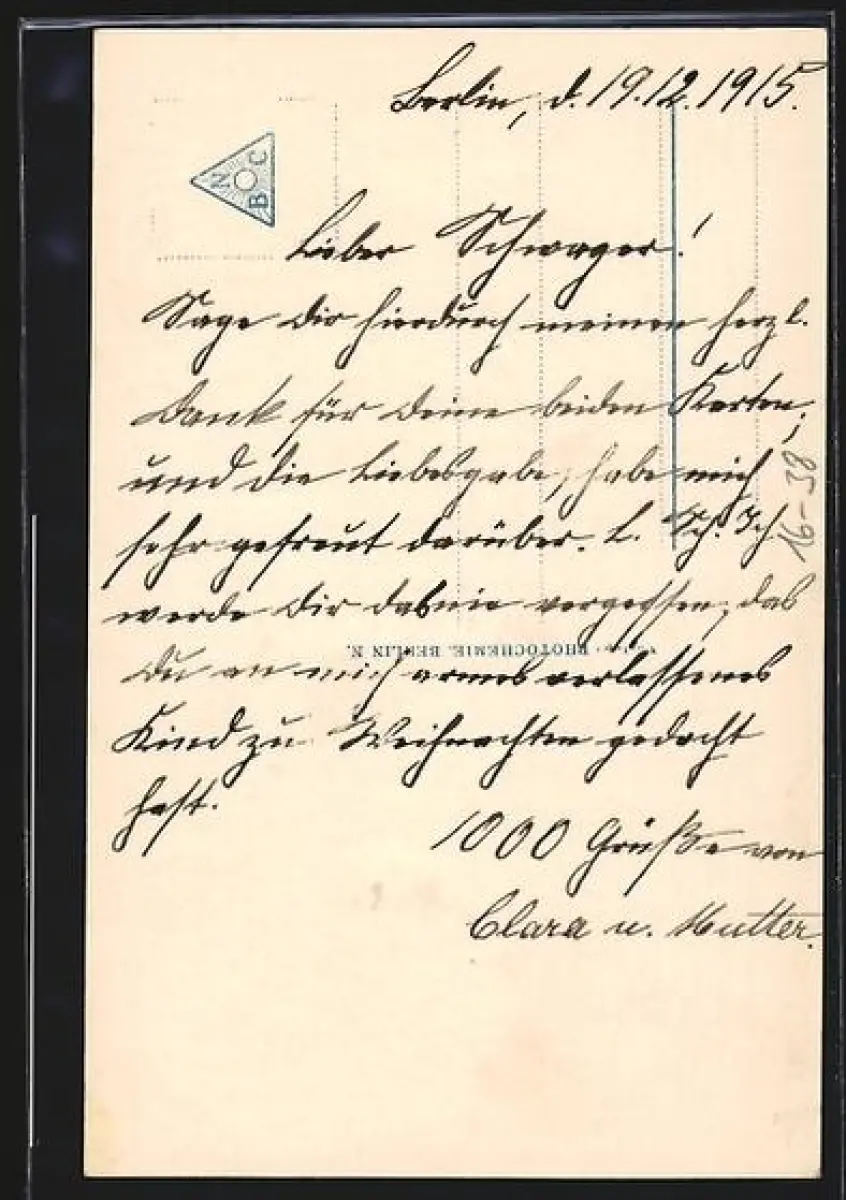 Berlin, d. 19.12.1915.
N
B C
Lieber Schwager!
Sage Dir hierdurch meinen herzl.
Dank für Deine beiden Karten,
und die Liebesgabe, habe mich
sehr gefreut darüber. L. Sch. Ich
werde Dir das nie vergessen, das
PHOTOCHEMIE, BERLIN N.
Du an mich armes verlassenes
Kind zu Weihnachten gedacht
hast.
1000 Grüße von
Clara u. Mutter.
16-38